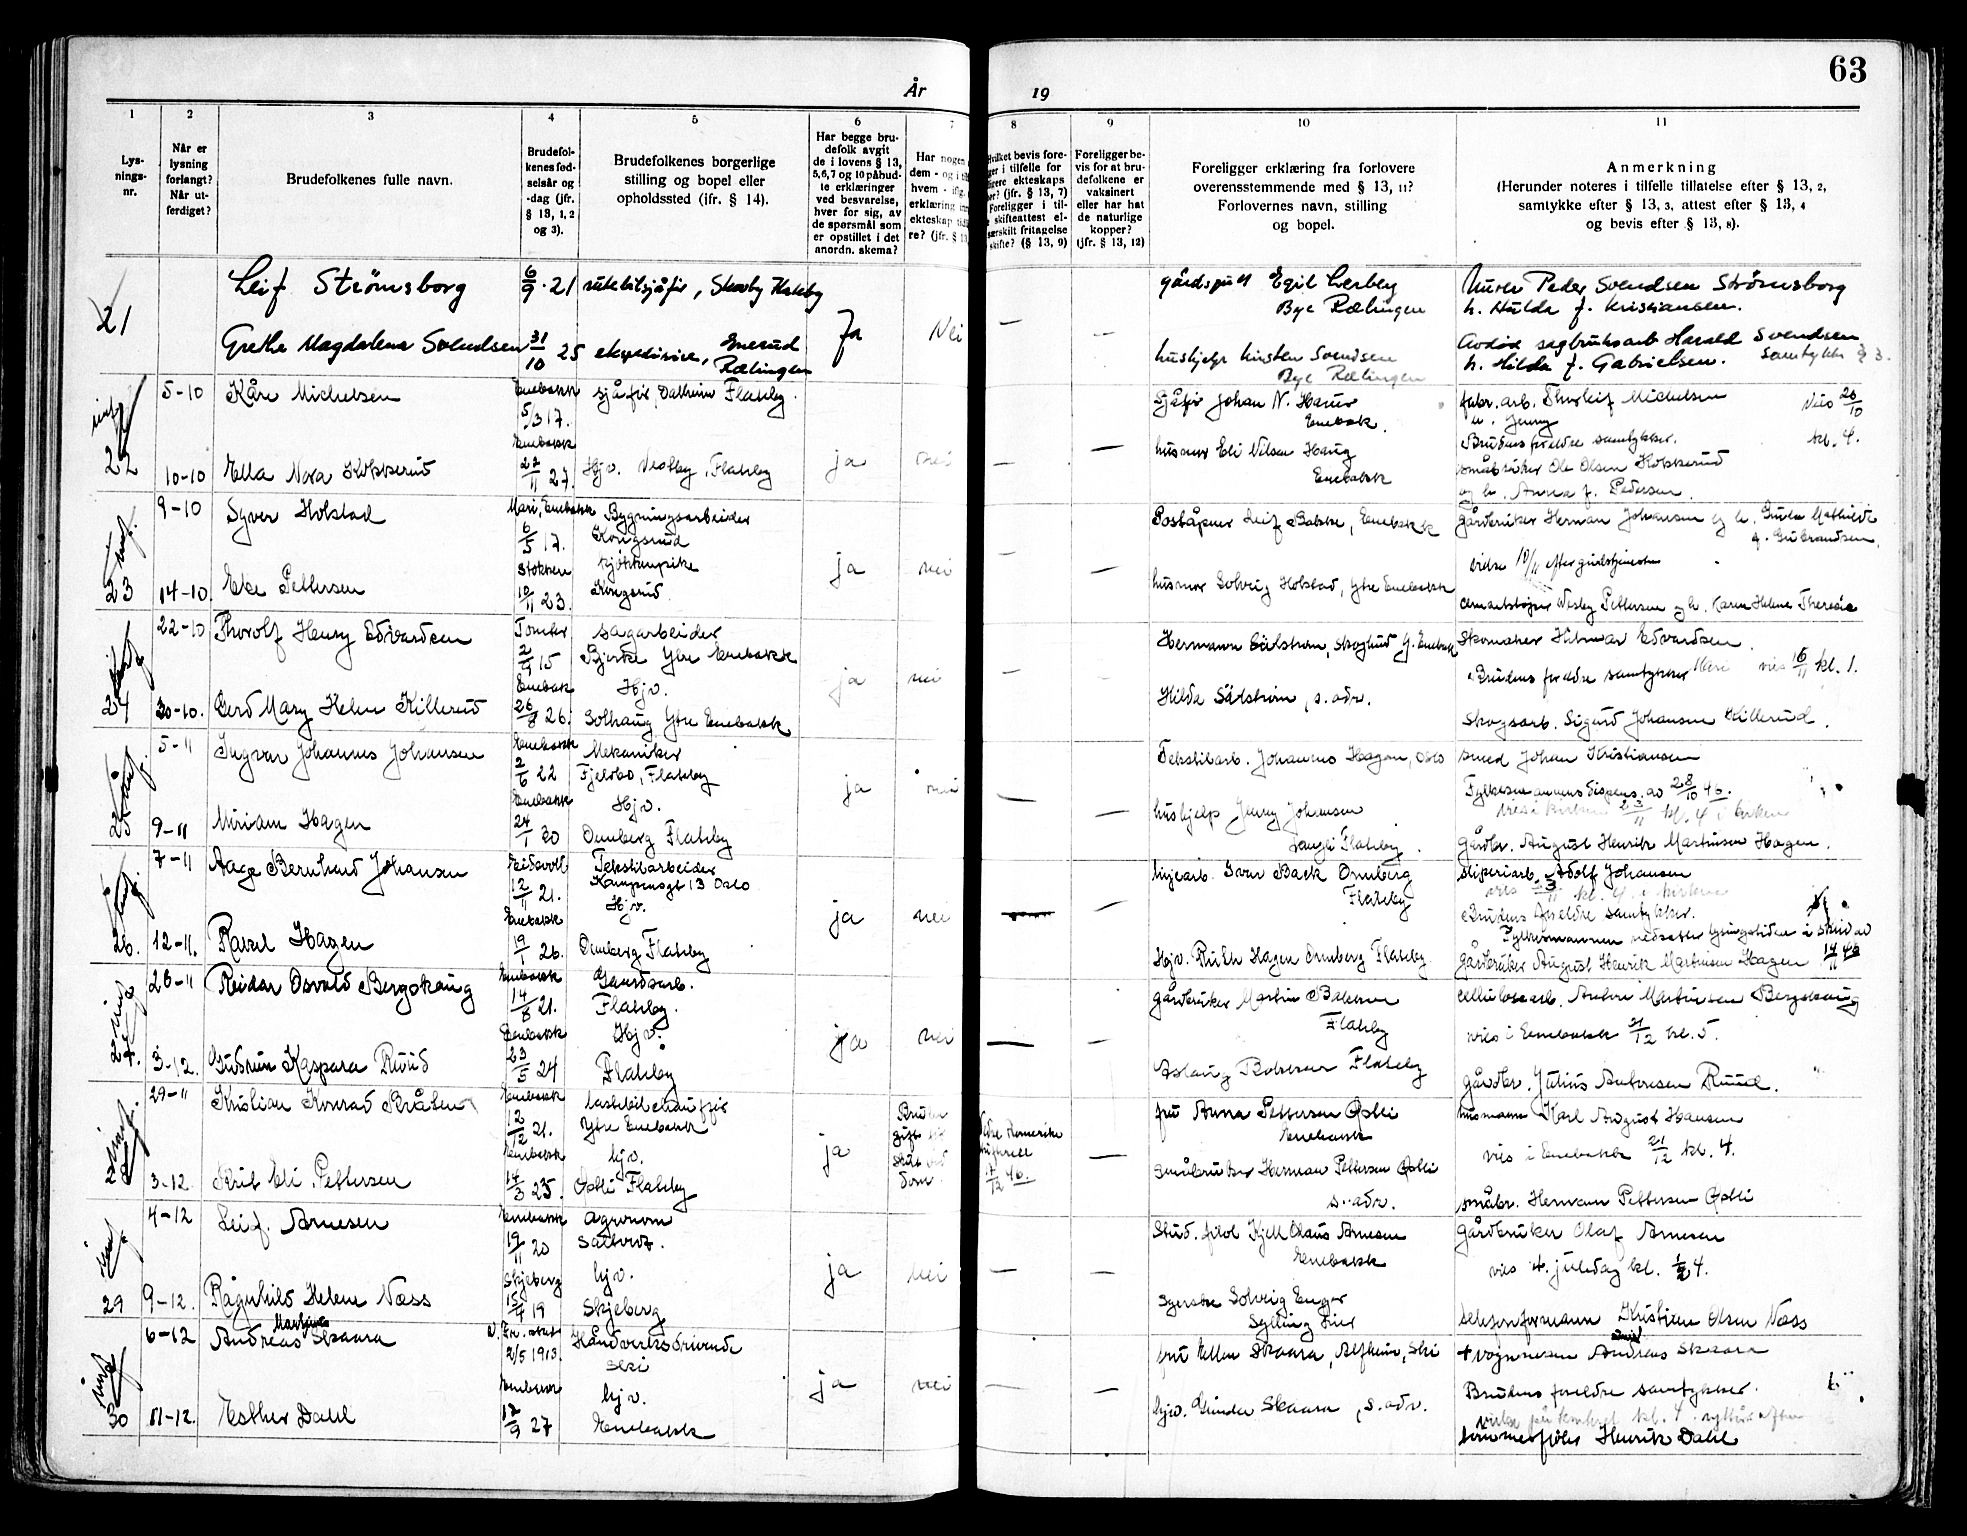 63
År 19
1
Lys-
nings-
nr.
2
Når er
lysning
forlangt?
Når ut-
ferdiget?
3
Brudefolkenes fulle navn.
4
Brudefol-
kenes fød-
selsår og
-dag (jfr.
§ 13, 1, 2
og 3).
5
Brudefolkenes borgerlige
stilling og bopel eller
opholdssted (ifr. § 14).
6
Har begge bru-
defolk avgit
de i lovens § 13,
5, 6, 7 og 10 påbud-
te erklæringer
ved besvarelse,
hver for sig, av
de spørsmål som
er opstillet i det
anordn. skema?
7
Har nogen
dem - og i
hvem - iflg.
erklæring
ekteskap
re? (jfr. § 13,
8
Hvilket bevis fore-
ger i tilfelle for
ligere ekteskaps
or? (jfr. § 13, 7)
Foreligger i til-
skifteattest el-
særskilt fritagelse
skifte? (§ 13, 9)
9
Foreligger be-
vis for at bru-
defolkene er
vaksinert
eller har hat
de naturlige
kopper?
(jfr. § 13, 12)
10
Foreligger erklæring fra forlovere
overensstemmende med § 13, 11?
Forlovernes navn, stilling
og bopel.
11
Anmerkning
(Herunder noteres i tilfelle tillatelse efter § 13, 2,
samtykke efter § 13, 3, attest efter § 13, 4
og bevis efter § 13, 8).
21 Leif Strømsborg 6/9 · 21 rutebilsjåfør, Skovby Flateby gårdsgutt Egil Lerbey Murer Peder Svendsen Strømsborg
Bye Rælingen h. Hulda f. Kristiansen.
Grethe Magdalena Svendsen 31/10 25 ekspeditrise, Enerud Ja Nei — — Avdøde sagbruksarb Harald Svendsen
Rælingen hushjelp Kirsten Svendsen h. Hilda f. Gabrielsen. Samtykke § 3.
Bye Rælingen
22 5-10 Kåre Michelsen Enebakk sjåfør, Dalheim Flateby. Sjåfør Johan N. Haug fabr. arb. Thorleif Michelsen Vies 26/10
5/3 17. Enebakk. h. Jenny kl. 4.
Enebakk husmor Eli Nilsen Haug Brudens foreldre samtykker.
10-10 Ella Nora Kokkerud 27/11 27. Hjv. Vestby, Flateby ja nei — — Enebakk småbruker Ole Olsen Kokkerud
og h. Anna f. Pedersen.
23 9-10 Syver Holstad Mari, Enebakk Bygningsarbeider Poståpner Leif Bakke, Enebakk gårdbruker Herman Johansen og h. Gusta Mathilde
6/5 17. Kongsrud f. Gulbrandsen.
Stokken kjøkkenpike vielse 10/11 efter gudstjenesten
14-10 Else Pettersen 10/11 23. Kongsrud ja nei — — husmor Solveig Holstad, Ytre Enebakk Wesley Pettersen og h. Karen Helene Therese
24 22-10 Thorolf Henry Edvardsen Tomter sagarbeider Hermann Sælstrøm, Skoglund Y. Enebakk Skomaker Hilmar Edvardsen.
2/9 15 Bjerke Ytre Enebakk Brudens foreldre samtykker Mari vies 16/11 kl. 1.
Enebakk Hjv.
30-10. Gerd Mary Helene Killerud 26/8 26. Solhaug Ytre Enebakk ja nei — — Hilda Sælstrøm, s. adr. Skogsarb. Sigurd Johansen Killerud.
25 5-11 Ingvar Johannes Johansen Enebakk Mekaniker Tekstilarb. Johannes Hagen, Oslo smed Johan Kristiansen
2/6 22 Fjelstad, Flateby Fylkesmannens dispens. av 28/10 46.
Enebakk Hjv. ja nei — — hushjelp Jenny Johansen vies i kirken 23/11 kl. 4 i kirken
9-11 Miriam Hagen 24/1 30 Omberg Flateby Flateby. Gårdbr. August Henrik Martinsen Hagen.
26. 7-11 Aage Bernhard Johansen Eidsvoll Tekstilarbeider linjearb. Ivar Back Omberg sliperiarb. Adolf Johansen
12/11 21. Kampensgt 13 Oslo Flateby vies 23/11 kl. 4 i kirken
Enebakk Hjv. ja nei — — Brudens foreldre samtykker.
12-11. Rakel Hagen 19/1 26. Omberg Flateby Fylkesmannen nedsetter lysningstiden i skriv av
Hjv. Ruth Hagen Omberg Flateby gårdbruker August Henrik Martinsen Hagen 14/11 46
27. 26-11 Reidar Osvald Bergskaug Enebakk Gaardsarb. gårdbruker Martin Bakken cellulosearb. Anton Martinsen Bergskaug
14/8 21. Flateby. Flateby
Enebakk Hjv. ja nei — — vies i Enebakk 21/12 kl. 5.
3-12. Gudrun Kaspara Ruud 23/5 24 Flateby Aslaug Bakken Flateby gårdbr. Julius Antonsen Ruud.
28 29-11 Kristian Konrad Bråten Enebakk lastebilchauffør Bruden Nedre Romerike fru Anna Pettersen Opsli husmann Karl August Hansen
12/12 21. Ytre Enebakk gift Enebakk
Enebakk hjv. ja dom. 17/12 46. — vies i Enebakk 21/12 kl. 4.
3-12. Kris Eli Pettersen 14/3 25. Opsli Flateby småbruker Herman Pettersen Opsli
s. adr. småbr. Herman Pettersen Opsli
29 4-12 Leif Arnesen Enebakk agronom Stud. filol Kjell Olaus Arnesen Gårdbruker Olaf Arnesen
19/11 20 Enebakk vies 4. juledag kl. ½ 4.
Skjeberg hjv. ja nei — —
9-12. Ragnhild Helene Næss 15/4 19 Skjeberg Syerske Solveig Enger
Sylling Lier seksjonsformann Kristian Olsen Næss
30 6-12 Andreas Martinus Skaara Håndverksdrivende fru Ellen Skaara, Alfheim, Ski + vognmann Andreas Skaara
2/5 1913. Ski
Enebakk hjv. ja nei — — Brudens foreldre samtykker.
11-12. Esther Dahl 12/9 27 Enebakk hjv. Gunda Skaara, s. adr. kl. 4
tømmerfløter Henrik Dahl